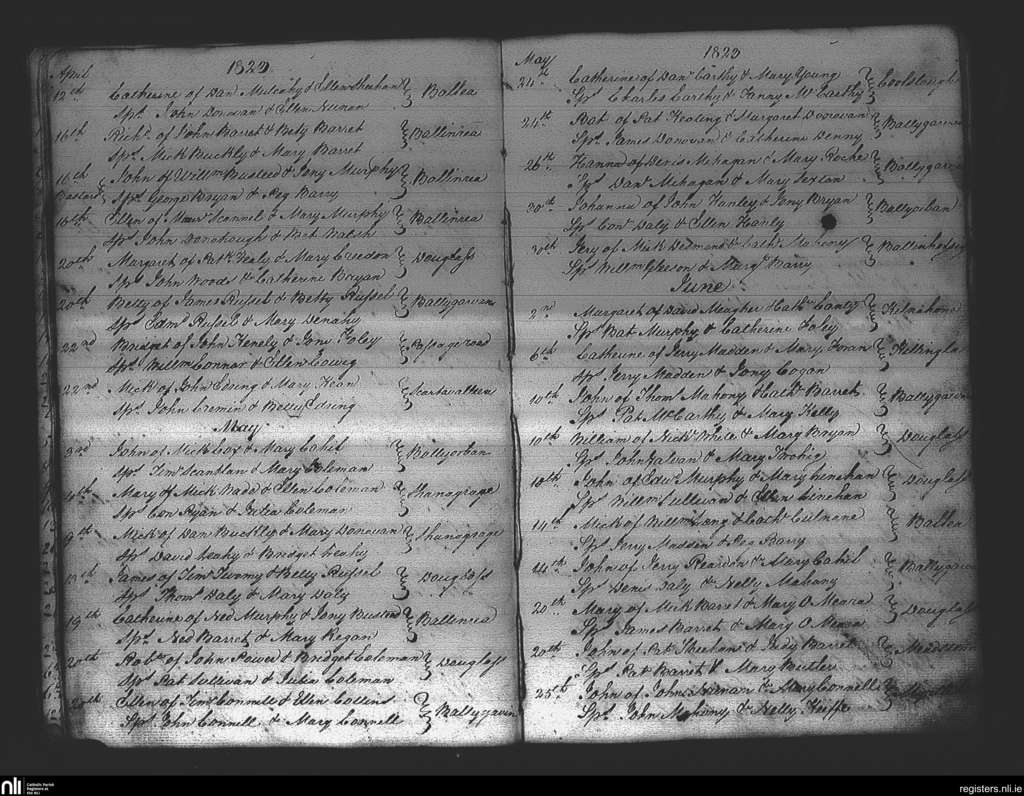 1823
April
12th Catherine of Dan Mulcahy & Ellen Shehan Ballea
Sps. John Donovan & Ellen Nunan
16th Richd. of John Barret & Bety Barret Ballinrea
Sps. Mick Buckly & Mary Barret
16th John of Willm Busteed & Jony Murphy Ballinrea
Bastard Sps. George Bryan & Peg Barry
18th Ellen of Connel & Mary Murphy Ballinrea
Sps. John Donohough & Bet Walsh
20th Margaret of Patk. Healy & Mary Douglass
Sps. John Woods & Catherine Bryan
20th Betty of James Russel & Betty Russel Ballygarvan
Sps. Edmd. Russel & Mary Denahy
22nd Bridget of John & Foley Passage road
Sps. Willm Connor & Ellen
22nd Mick of John & Mary Kean
Sps. John Cremin & Betty
May
3rd John of Mick Cox & Mary Cahil Ballyorban
Sps. Timy. Scanlan & Mary Coleman
4th Mary of Mick Wade & Ellen Coleman Shanagrage
Sps. Con Ryan & Julia Coleman
9th Mick of Dan Buckly & Mary Donovan Shanagrage
Sps. David Leahy & Bridget Leahy
13th James of Timy. Twomy & Betty Russel Douglass
Sps. Thoms. Daly & Mary Daly
19th Catherine of Ned Murphy & Jony Busteed Ballinrea
Sps. Ned Barret & Mary Regan
20th Robt. of John Power & Bridget Coleman Douglass
Sps. Pat Sullivan & Julia Coleman
20th Ellen of Timy. Connell & Ellen Collins Ballygarvan
Sps. John Connell & Mary Connelle
1823
May
24th Catherine of Danl. Carthy & Mary Young
Sps. Charles Carthy & Fanny McCarthy
24th Bat of Pat & Margaret Donovan
Sps. James Donovan & Catherine Denny
26th Hanna of Denis Mehagan & Mary Roche
Sps. Danl. Mehagan & Mary Sexton
30th Johanna of John Hanley & Jony Bryan Ballyorban
Sps. Con Daly & Ellen Hanly
30th Jery of Mick Desmond & Cath. Mahony
Sps. Willm & Margt. Barry
June
2nd Margaret of David Meagher & Cath.
Sps. Bat Murphy & Catherine Foley
6th Catherine of Jerry Madden & Mary Foran
Sps. Jerry Madden & Jony Cogan
10th John of Thoms. Mahony & Cath. Barret
Sps. Pat McCarthy & Mary Kelly
10th William of Nick White & Mary Bryan Douglass
Sps. John Galvan & Mary
10th John of Edwd. Murphy & Mary Linehan Douglass
Sps. Willm Sullivan & Ellen Linehan
14th Mick of Willm Long & Cath. Culnane Ballea
Sps. Jerry Madden & Peg Barry
24th John of Jerry Reardon & Mary Cahil
Sps. Denis Daly & Nelly Mahony
20th Mary of Mick Barret & Mary O Meara Douglass
Sps. James Barret & Mary O Meara
20th John of Pat Sheehan & Judy Barret
Sps. Pat Barret & Mary Butler
25th John of John Noonan & Mary Connelle
Sps. John Mahony & Nelly Keeffe
nli
Catholic Parish
Registers at
the NLI
registers.nli.ie